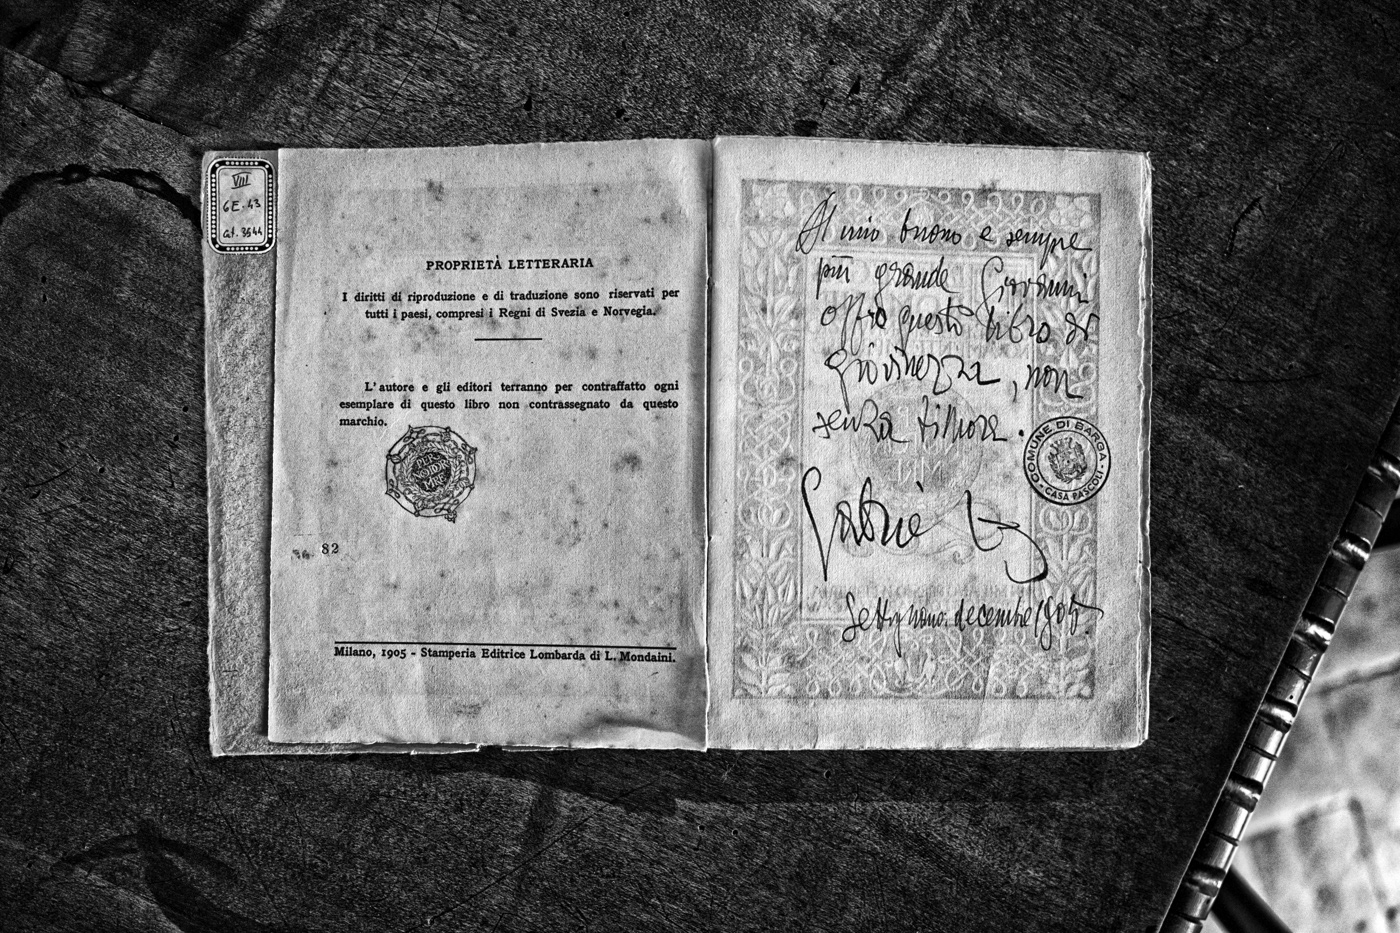 VIII
6E.43
cat. 3544
PROPRIETÀ LETTERARIA
I diritti di riproduzione e di traduzione sono riservati per
tutti i paesi, compresi i Regni di Svezia e Norvegia.
L'autore e gli editori terranno per contraffatto ogni
esemplare di questo libro non contrassegnato da questo
marchio.
82
Milano, 1905 - Stamperia Editrice Lombarda di L. Mondaini.
Al mio buono e sempre
più grande Giovanni
offro questo libro di
giovinezza, non
senza timore.
COMUNE DI BARGA
CASA PASCOLI
Gabriele
Settignano: decembre 1905.